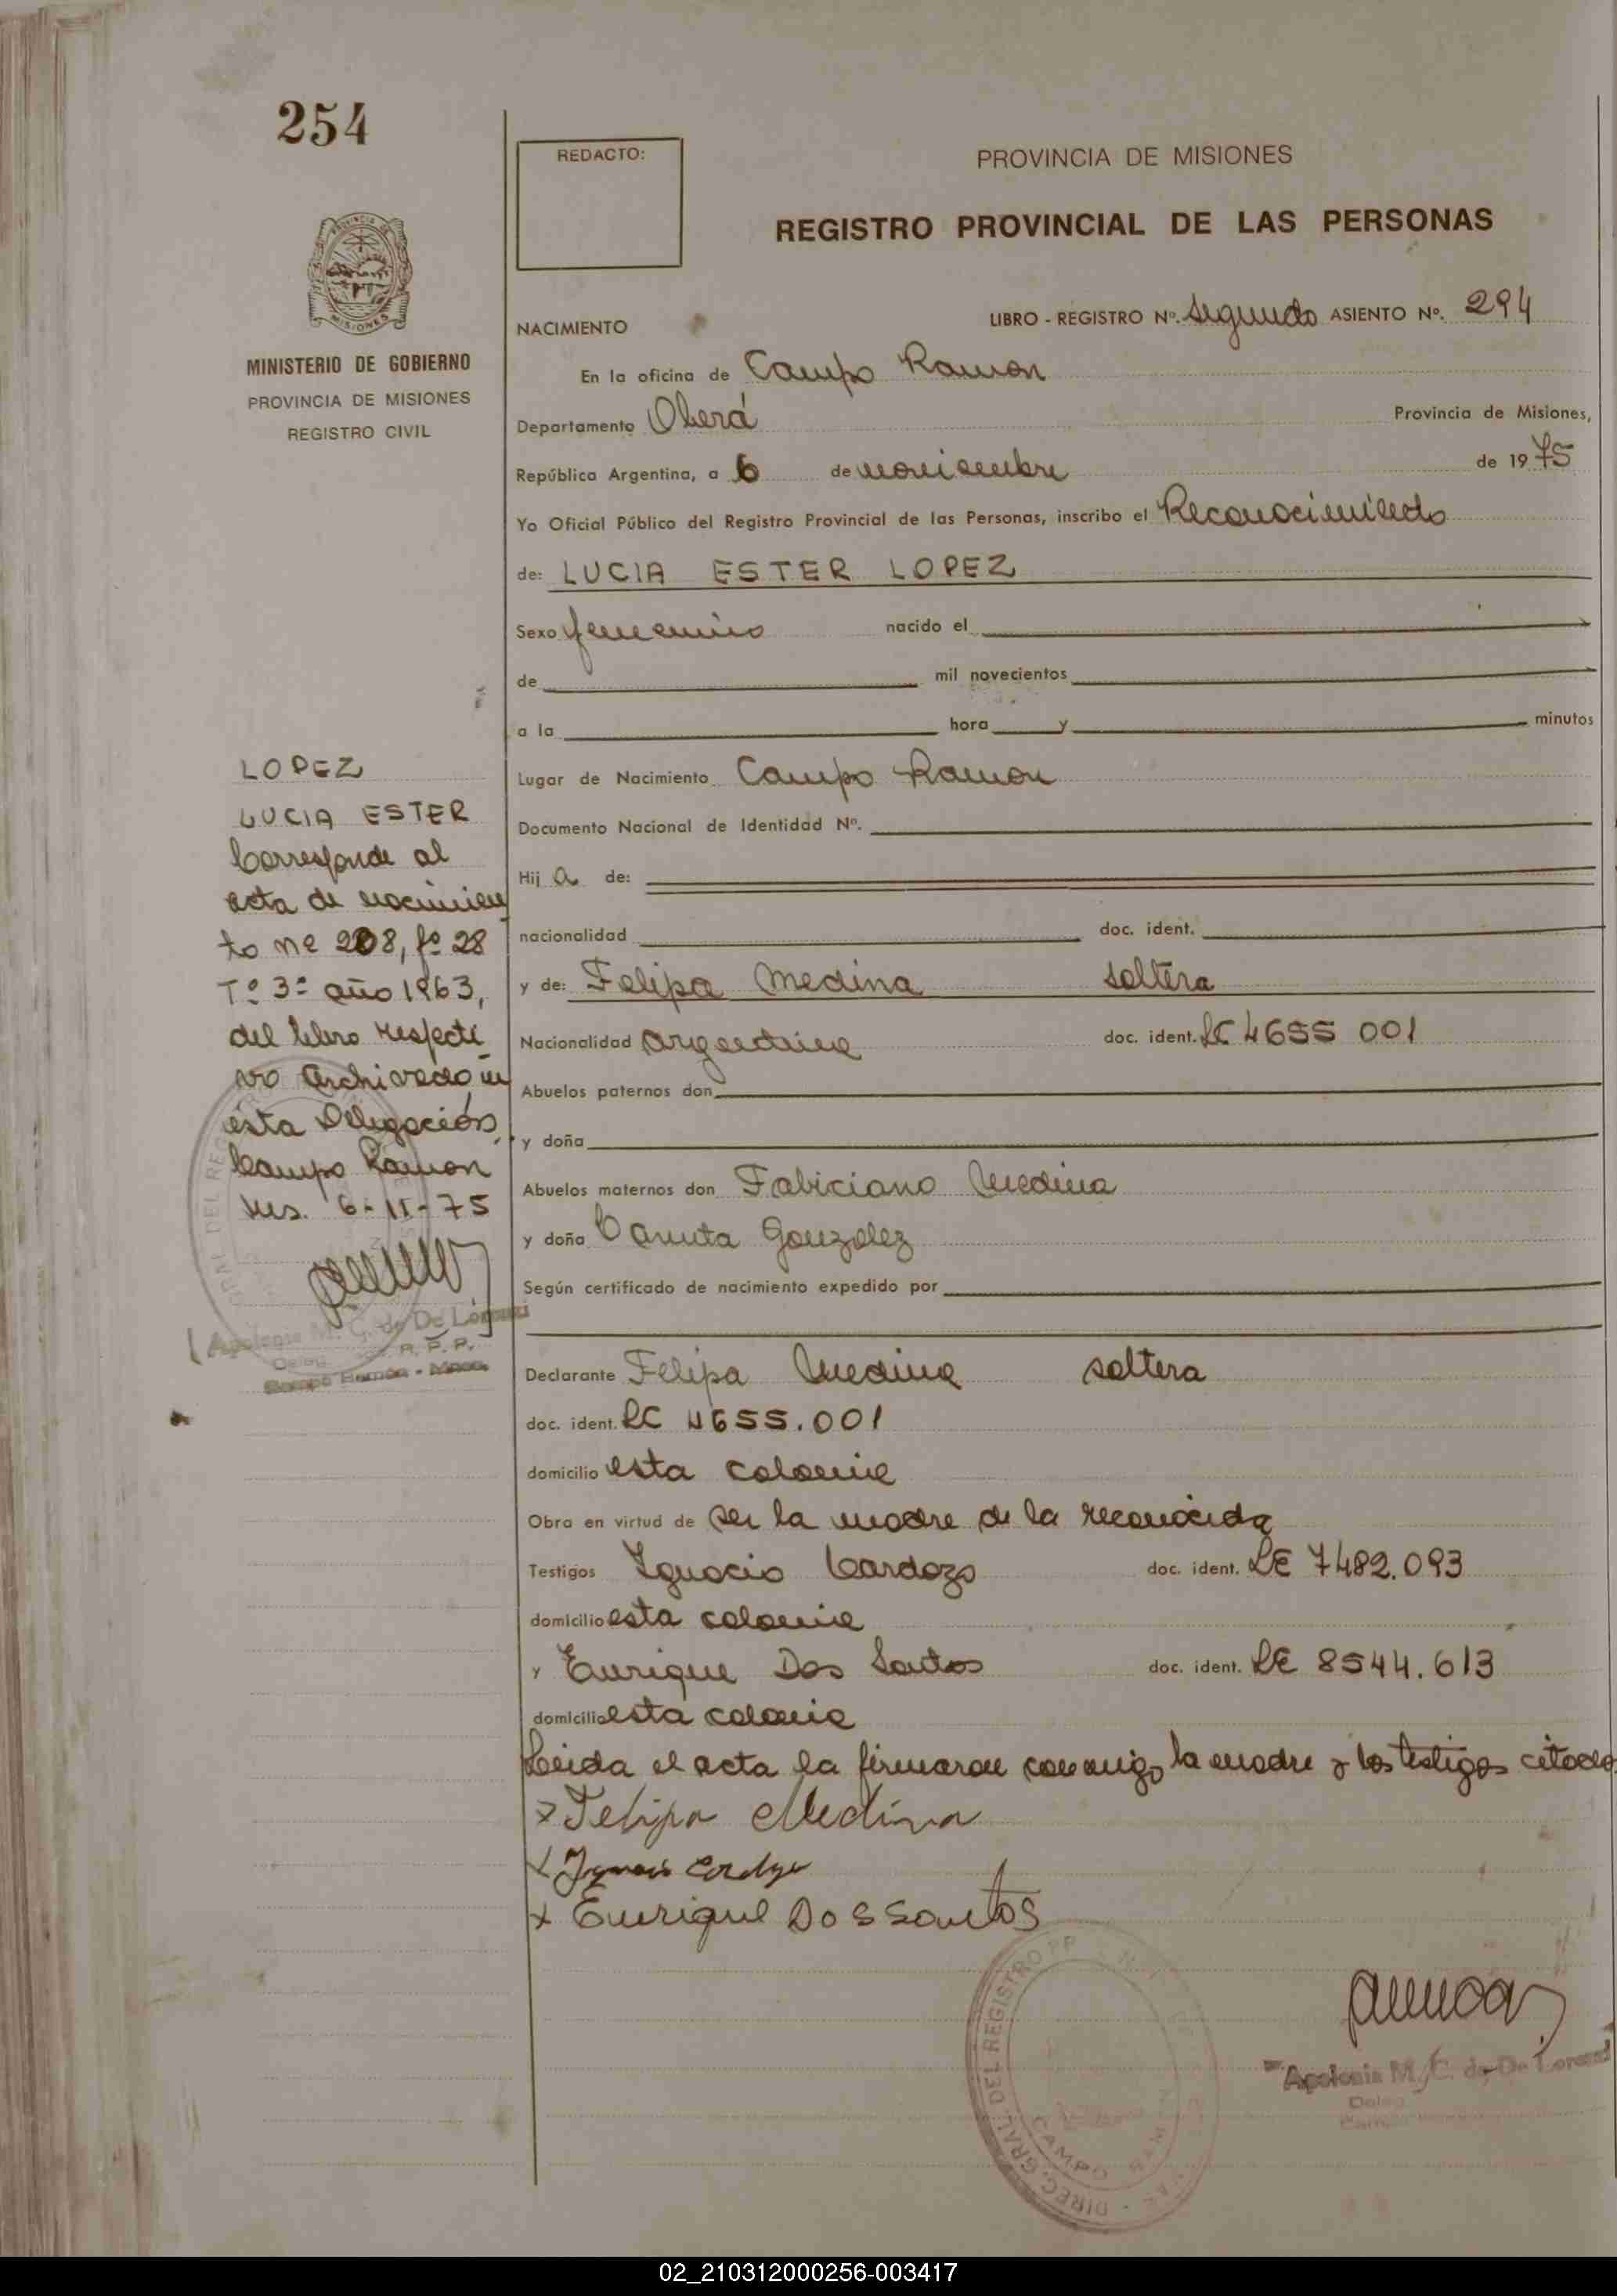 254
REDACTO:
PROVINCIA DE MISIONES
REGISTRO PROVINCIAL DE LAS PERSONAS
MISIONES
MINISTERIO DE GOBIERNO
PROVINCIA DE MISIONES
REGISTRO CIVIL
NACIMIENTO
LIBRO - REGISTRO Nº. Segundo ASIENTO Nº. 294
En la oficina de Campo Ramon
Departamento Oberá Provincia de Misiones,
República Argentina, a 6 de noviembre de 1975
Yo Oficial Público del Registro Provincial de las Personas, inscribo el Reconocimiento
de: LUCIA ESTER LOPEZ
Sexo femenino nacido el
de mil novecientos
a la hora y minutos
Lugar de Nacimiento Campo Ramon
Documento Nacional de Identidad Nº.
Hij a de:
nacionalidad doc. ident.
y de: Felipa Medina soltera
Nacionalidad argentina doc. ident. LC 4655 001
Abuelos paternos don
y doña
Abuelos maternos don Fabiciano Medina
y doña Canuta Gonzalez
Según certificado de nacimiento expedido por
Declarante Felipa Medina soltera
doc. ident. LC 4655.001
domicilio esta colonia
Obra en virtud de ser la madre de la reconocida
Testigos Ignacio Cardozo doc. ident. LE 7482.093
domicilio esta colonia
y Enrique Dos Santos doc. ident. LE 8544.613
domicilio esta colonia
Leida el acta la firmaron conmigo, la madre y los testigos citados
x Felipa Medina
x Ignacio Cardozo
x Enrique Dos Santos
LOPEZ
LUCIA ESTER
Corresponde al
acta de nacimien
to nº 208, fº 28
Tº 3º año 1963,
del libro respecti
vo archivado en
esta Delegación,
Campo Ramon
Ms. 6-11-75
Apolonia M. C. de De Lorenzi
Deleg. R. P. P.
Campo Ramón - Mnes.
DIREC. GRAL DEL REGISTRO
CAMPO RAMON
Apolonia M. C. de De Lorenzi
Deleg
02_210312000256-003417